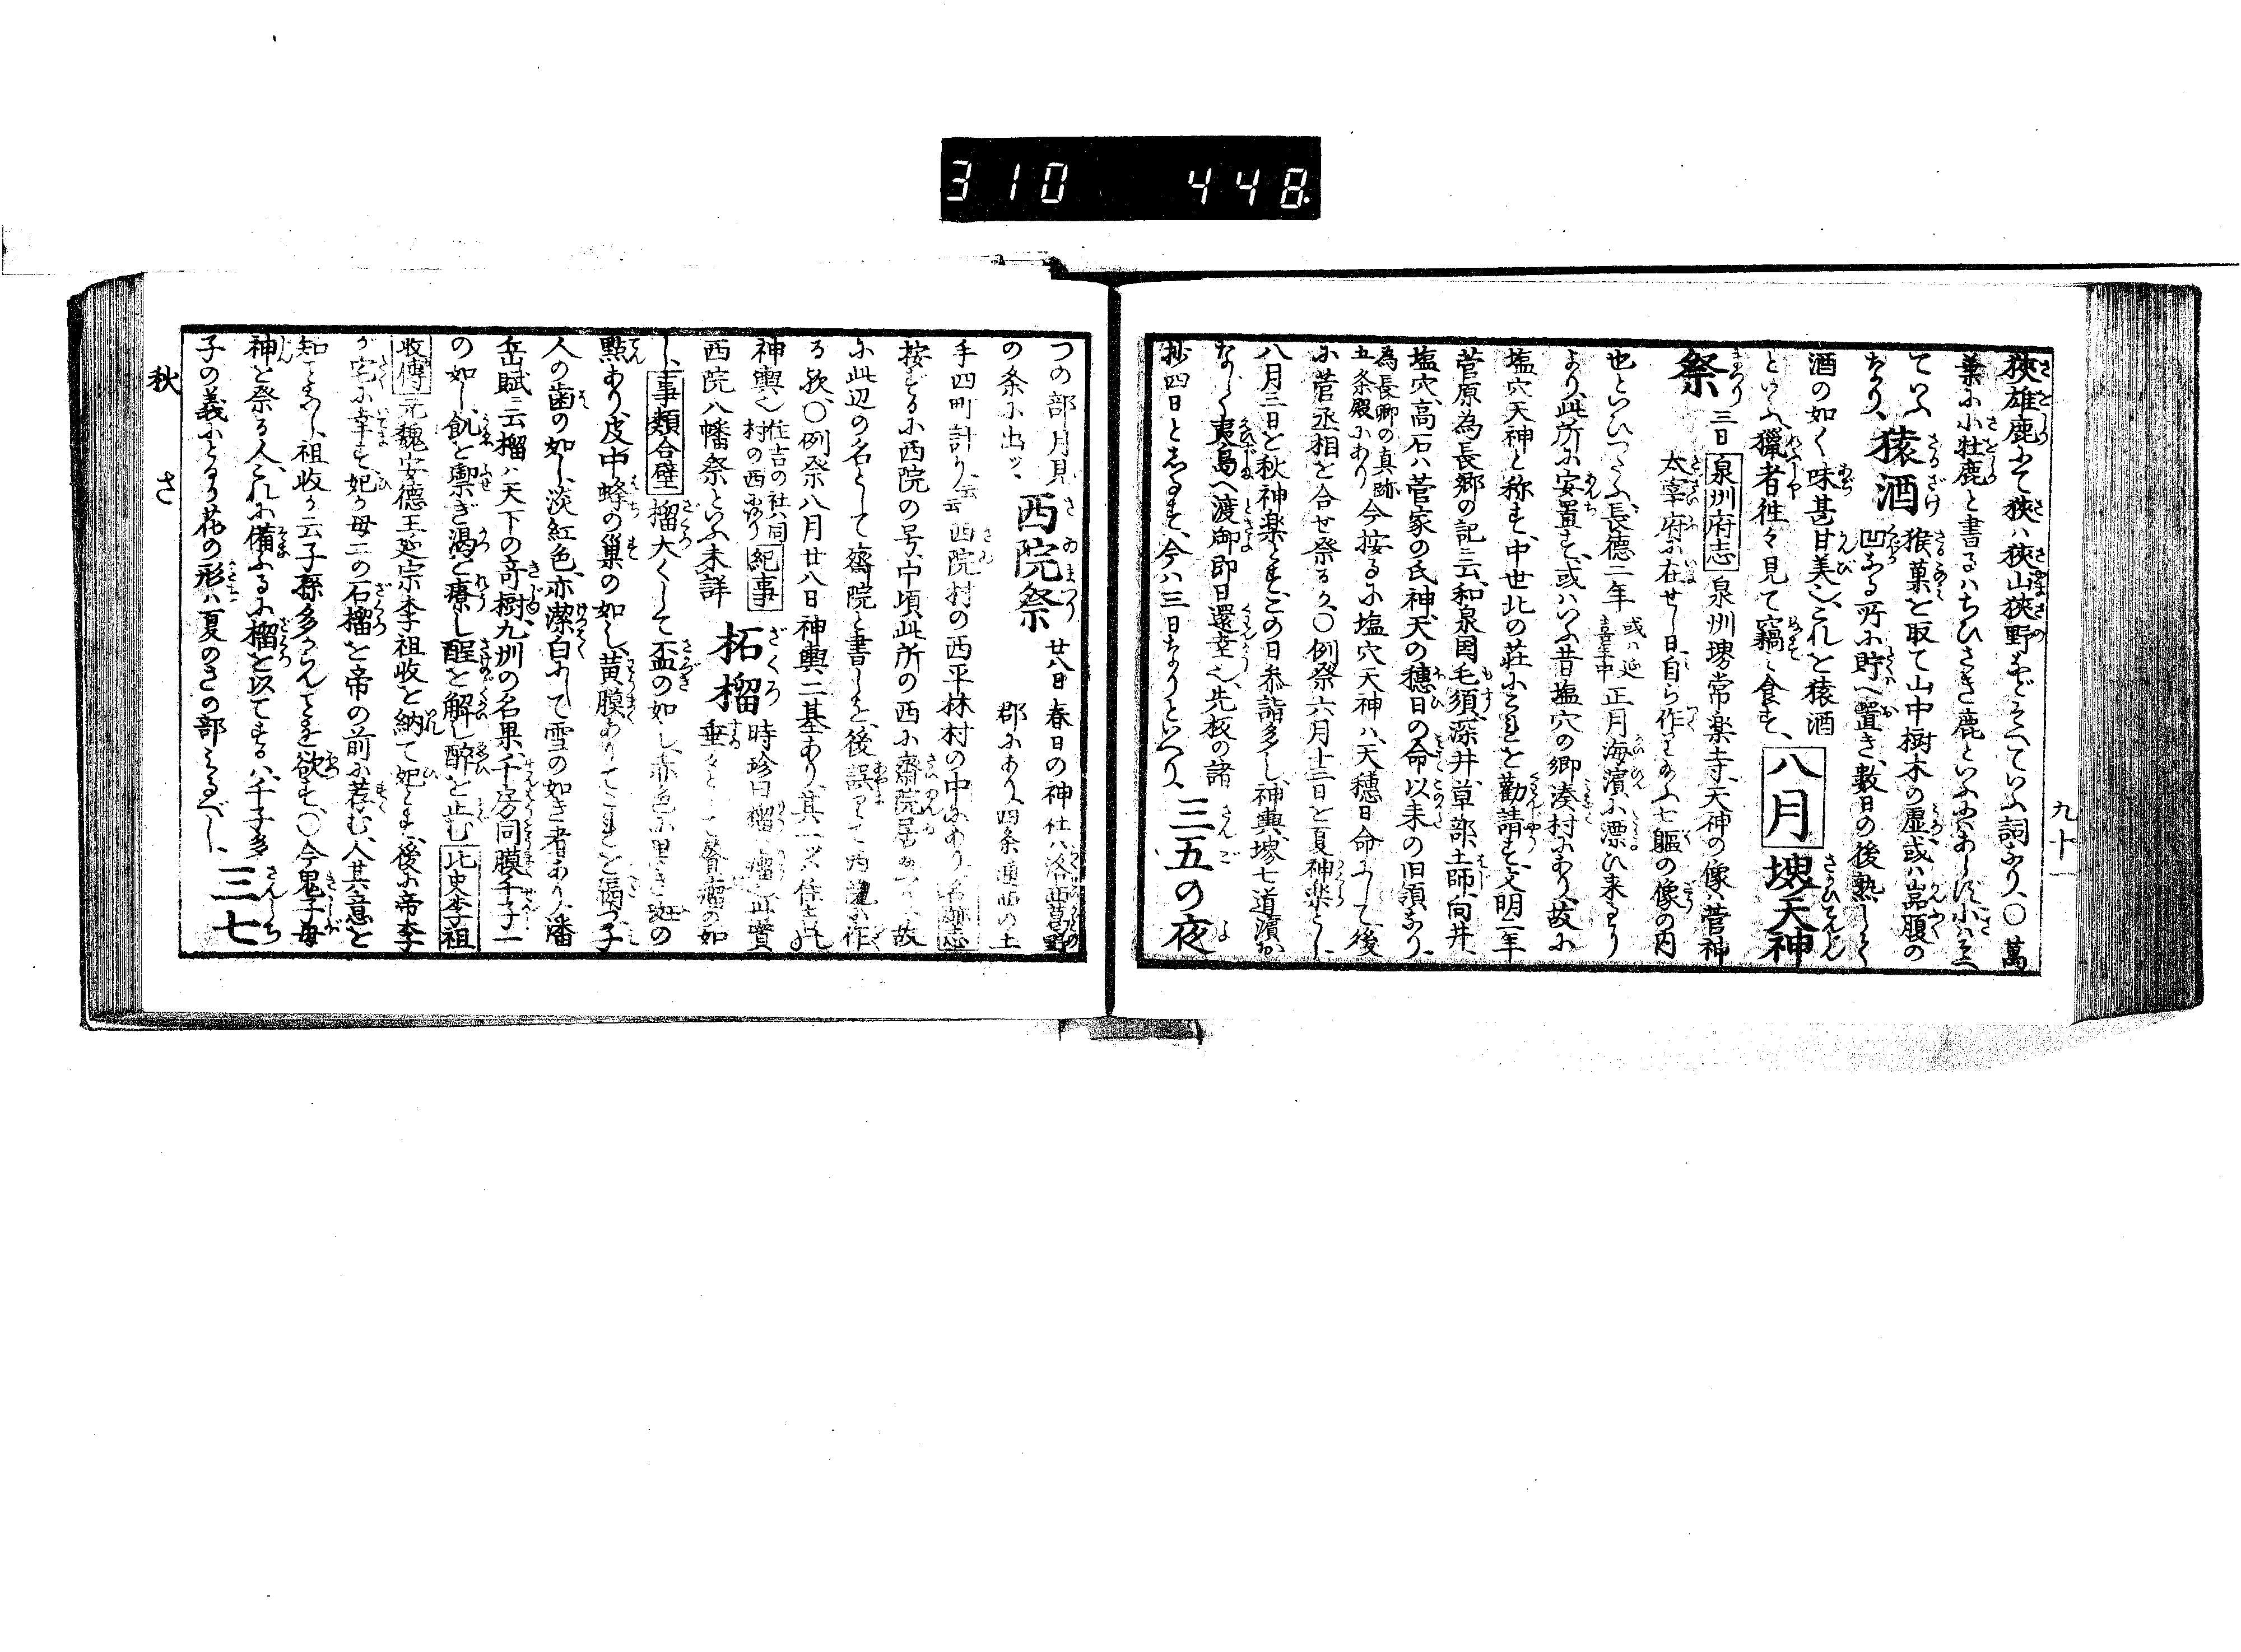 310 448
九十一
狭雄鹿にて狭ハ狭山狭野などそへていふ詞なり、〇萬
葉に小牡鹿と書るハちひさき鹿といふにハあらず、小ハそへ
ていふなり、猿酒 猴菓を取て山中樹木の虚、或ハ岩腹の
凹なる所に貯へ置き、数日の後熟して
酒の如く味甚甘美也、これを猿酒
といふ、獵者徃々見て竊に食す、八月 堺天神
祭 三日 泉州府志 泉州堺常楽寺、天神の像ハ菅神
太宰府に在せし日、自ら作らせたまふ七軀の像の内
也といひつたふ、長徳二年 或ハ延喜年中 正月海濱に漂ひ来るに
より、此所に安置す、或ハいふ昔塩穴の郷湊村にあり、故に
塩穴天神と称す、中世北の荘にこれを勸請す、文明二年
菅原為長郷の記ニ云、和泉国毛須、深井、草部、土師、向井、
塩穴、高石ハ菅家の氏神、天の穂日の命以来の旧領なり、
為長卿の真跡五条殿にあり 今按るに塩穴天神ハ、天穂日命にして後
に菅丞相を合せ祭るか、〇例祭六月十三日を夏神楽とし、
八月三日を秋神楽とす、この日参詣多し、神輿、堺七道濱
夷島へ渡御、即日還幸也、先板の諸
抄四日としるす、今ハ三日なりといへり、三五の夜
つの部月見
の条に出ッ、西院祭 廿八日 春日の神社ハ洛西葛野
郡にあり、四条通西の土
手四町計り云云 西院村の西平林村の中にあり 名跡志
按ずるに西院の号、中頃此所の西に齋院
に此辺の名として齋院と書しを、後誤りて西院に作
る歟、〇例祭八月廿八日神輿二基あり、其一ツハ住吉の
神輿也 住吉の社ハ同村の西にあり 紀事
西院八幡祭といふ未詳 柘榴 時珍曰榴ハ瘤也
垂々として贅瘤の如
し、事類合璧 榴大くして盃の如し、赤色に黒き斑の
點あり、皮中蜂の巢の如し、黄膜ありてこれを隔つ、子
人の歯の如し、淡紅色、亦潔白にして雪の如き者あり、潘
岳賦ニ云榴ハ天下の奇樹、九州の名果、千房同膜千子一
の如し、飢を禦ぎ渇を療し酲を解し醉を止む 北史李祖
收傳 元魏安德王延宗李祖收を納て妃とす、後に帝李
が宅に幸す、妃の母二の石榴を帝の前に荐む、人其意を
知ことなし、祖收が云子孫多からんことを欲す、〇今鬼子母
神を祭る人、これに備ふるに榴を以てするハ、千子多
子の義によるか花の形ハ夏のさの部にみるべし、三七
秋 さ